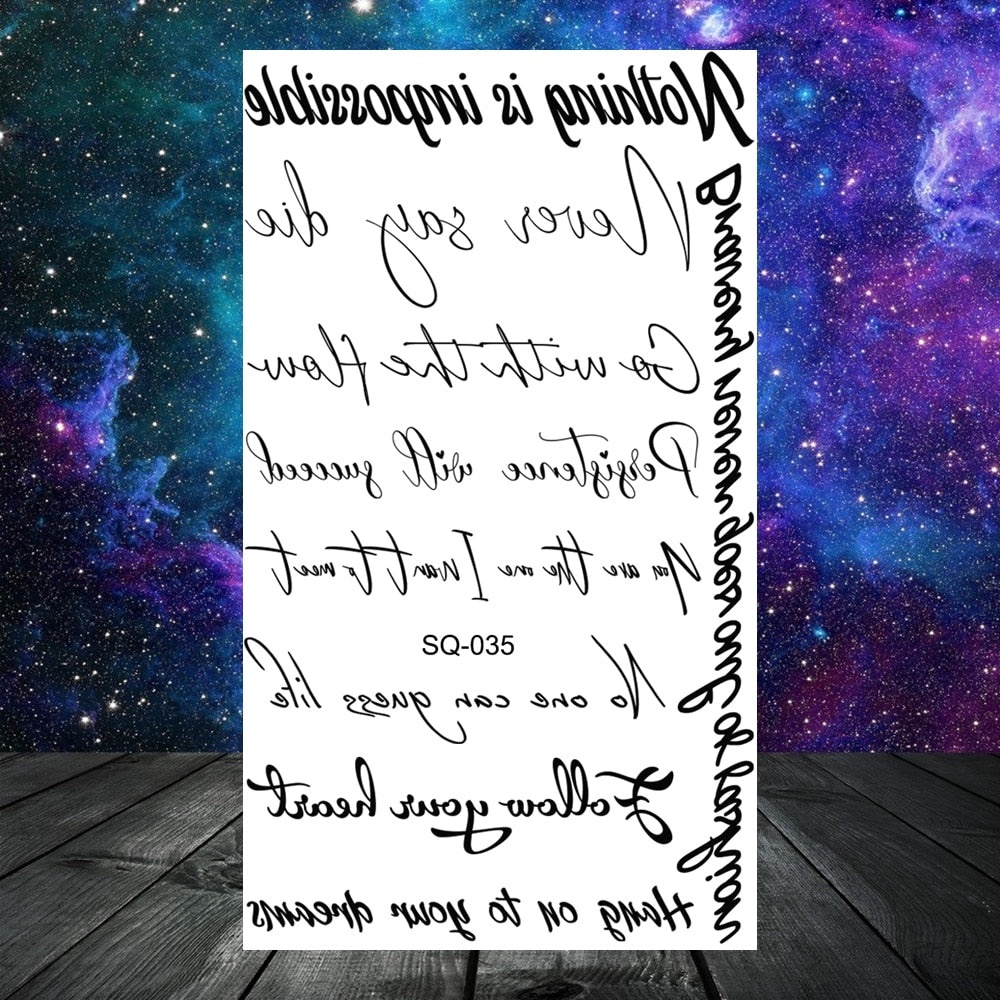 Nothing is impossible
Never say die
Go with the flow
Persistence will succeed
You are the one I want to meet
SQ-035
No one can guess life
Follow your heart
Hang on to your dreams
Bravery never goes out of fashion